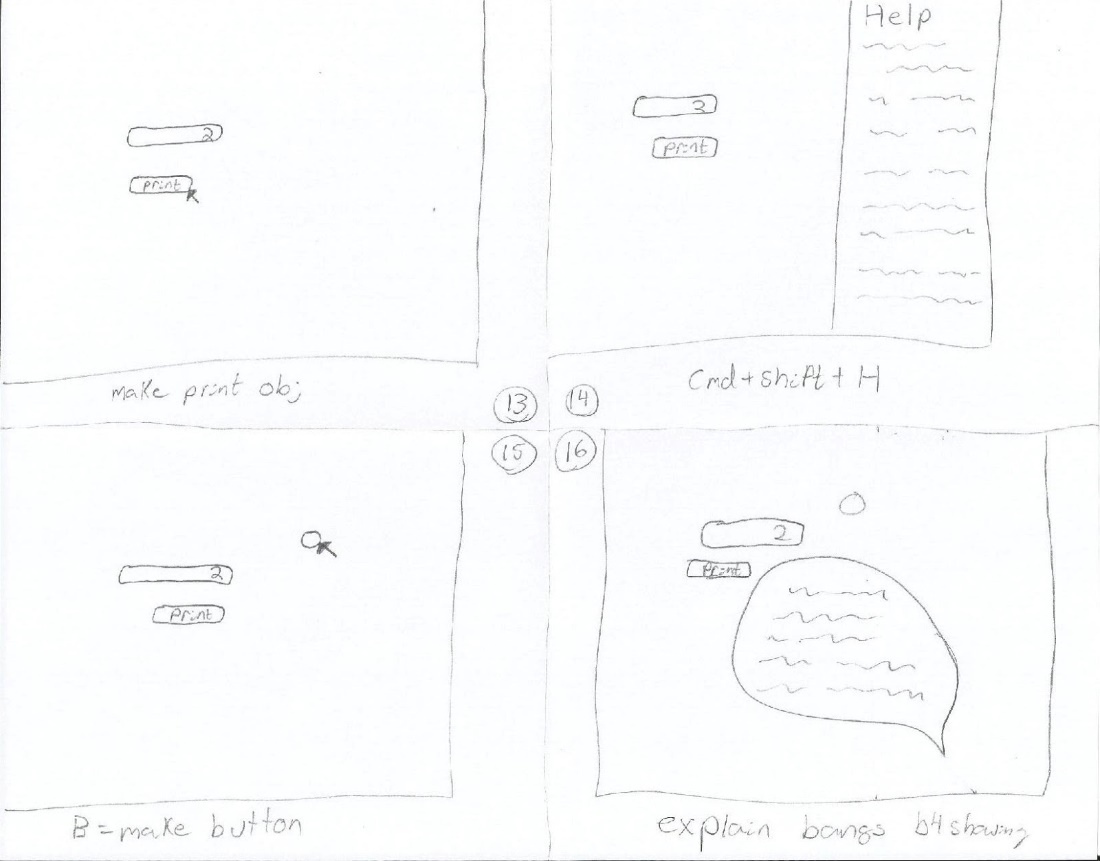 2
print
make print obj
13
Help
3
print
14
Cmd+shift+H
15
2
Print
B=make button
16
2
Print
explain bangs b4 showing